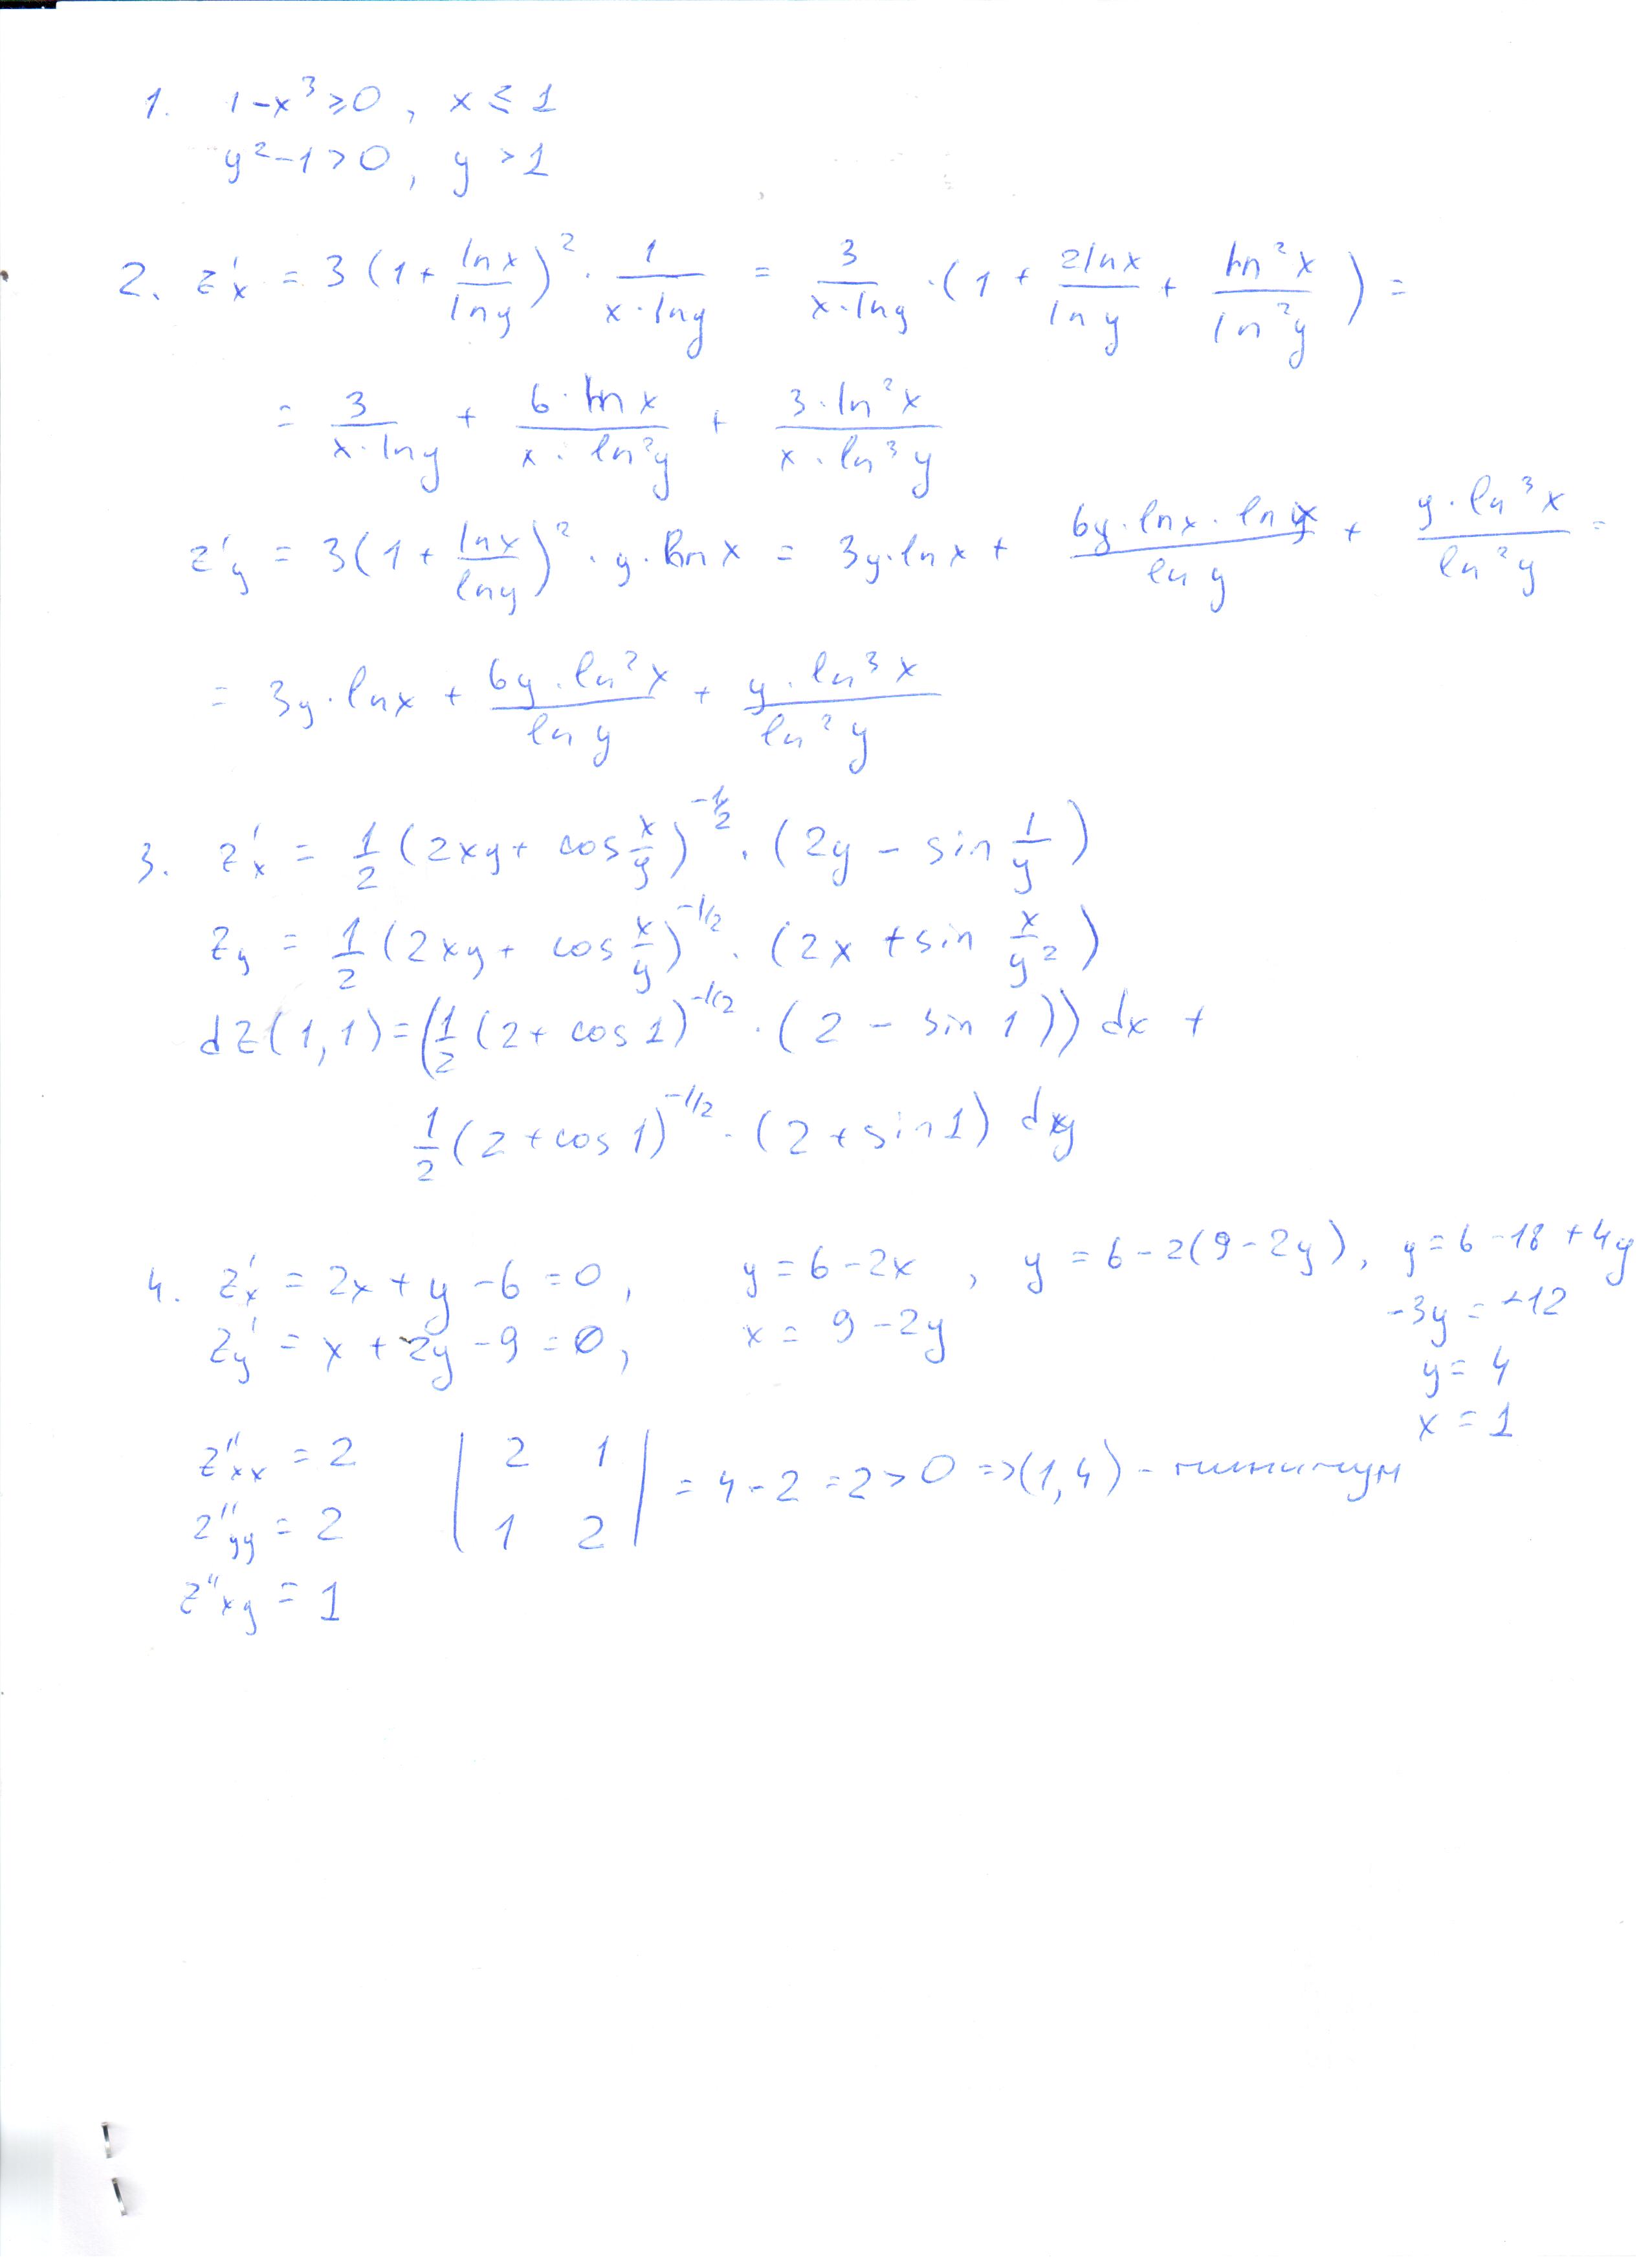 1. 1-x³ ≥ 0, x ≤ 1
y²-1 > 0, y > 1
2. z'x = 3(1 + lnx/lny)² · 1/(x·lny) = 3/(x·lny) · (1 + 2lnx/lny + ln²x/ln²y) =
= 3/(x·lny) + 6·lnx/(x·ln²y) + 3·ln²x/(x·ln³y)
z'y = 3(1 + lnx/lny)² · y·lnx = 3y·lnx + 6y·lnx·lnx/lny + y·ln³x/ln²y =
= 3y·lnx + 6y·ln²x/lny + y·ln³x/ln²y
3. z'x = 1/2 (2xy + cos x/y)^(-1/2) · (2y - sin 1/y)
zy = 1/2 (2xy + cos x/y)^(-1/2) · (2x + sin x/y²)
dz(1,1) = (1/2 (2 + cos 1)^(-1/2) · (2 - sin 1)) dx +
1/2 (2 + cos 1)^(-1/2) · (2 + sin 1) dy
4. z'x = 2x + y - 6 = 0, y = 6 - 2x, y = 6 - 2(9 - 2y), y = 6 - 18 + 4y
z'y = x + 2y - 9 = 0, x = 9 - 2y -3y = -12
y = 4
x = 1
z''xx = 2 | 2 1 |
z''yy = 2 | 1 2 | = 4 - 2 = 2 > 0 => (1,4) - минимум
z''xy = 1